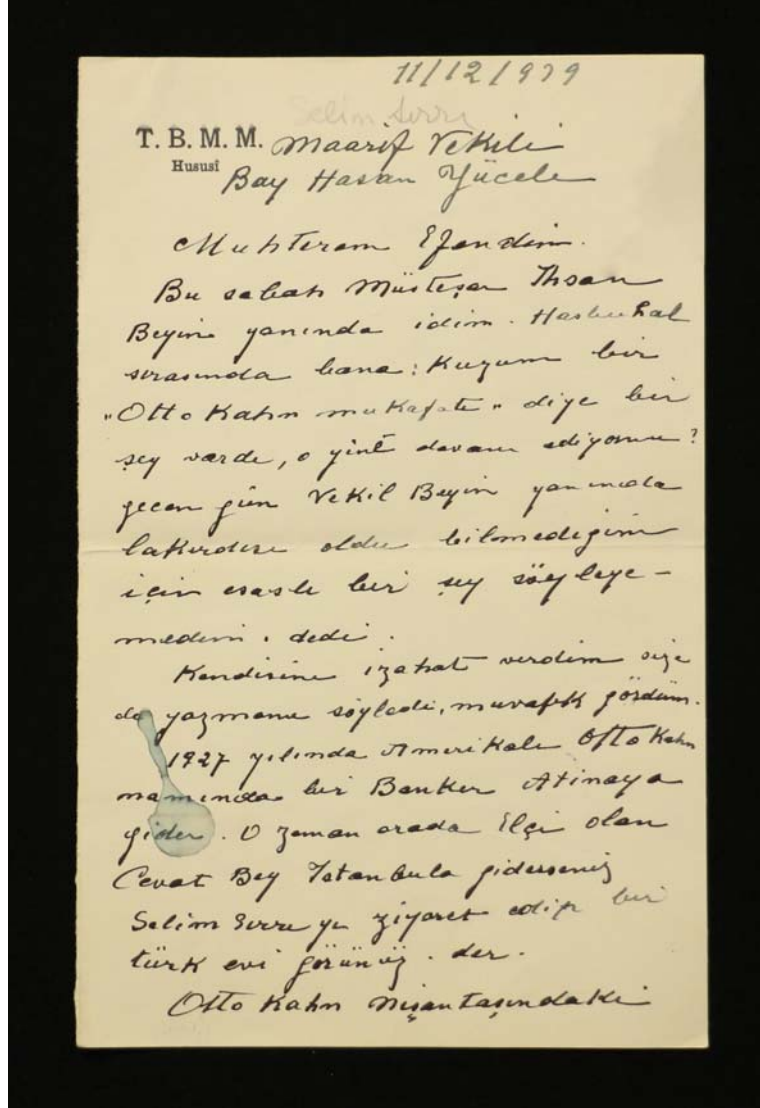 11/12/939
Selim Sırrı
T. B. M. M. Maarif Vekili
Hususî Bay Hasan Yücele
Muhterem Efendim.
Bu sabah Müsteşar Ihsan
Beyin yanında idim. Hasbuhal
sırasında bana: Kuzum bir
"Otto Kahn mukafatı" diye bir
şey vardı, o yine devam ediyormu?
geçen gün Vekil Beyin yanında
lakırdısı oldu bilmediğim
için esaslı bir şey söyleye-
medim. dedi.
Kendisine izahat verdim size
de yazmamı söyledi, muvafık gördüm.
1927 yılında Amerikalı Otto Kahn
namında bir Banker Atinaya
gider. O zaman orada Elçi olan
Cevat Bey Istanbula giderseniz
Selim Sırrı yı ziyaret edip bir
türk evi görünüz. der.
Otto Kahn Nişantaşındaki